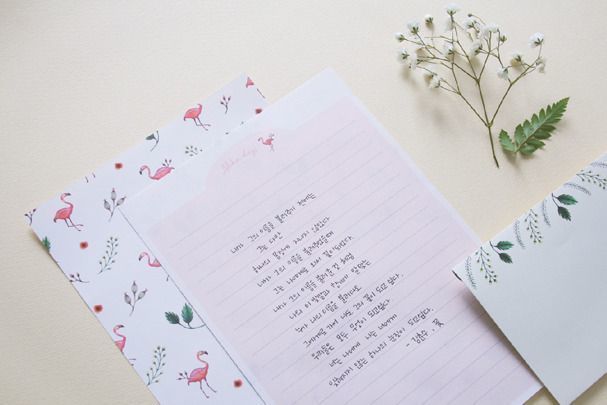 내가 그의 이름을 불러주기 전에는
그는 다만
하나의 몸짓에 지나지 않았다
내가 그의 이름을 불러주었을때
그는 나에게로 와서 꽃이되었다
내가 그의 이름을 불러준 것 처럼
나의 이 빛깔과 향기에 알맞는
누가 나의 이름을 불러다오
그에게로 가서 나도 그의 꽃이 되고 싶다.
우리들은 모두 무엇이 되고싶다.
너는 나에게 나는 너에게
잊혀지지 않는 하나의 눈짓이 되고싶다.
- 김춘수, 꽃